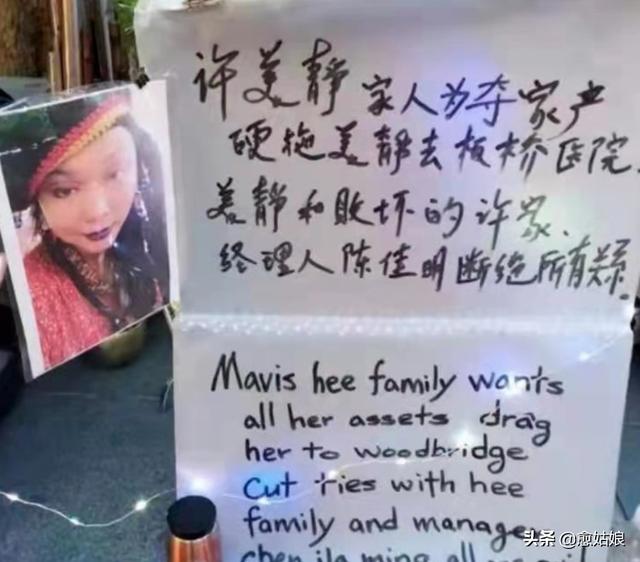 许美静家人为夺家产
硬拖美静去板桥医院.
美静和败坏的许家.
经理人陈佳明断绝所有关系.
Mavis hee family wants
all her assets drag
her to woodbridge
cut ties with hee
family and manager
chen jia ming all
头条 @愈姑娘